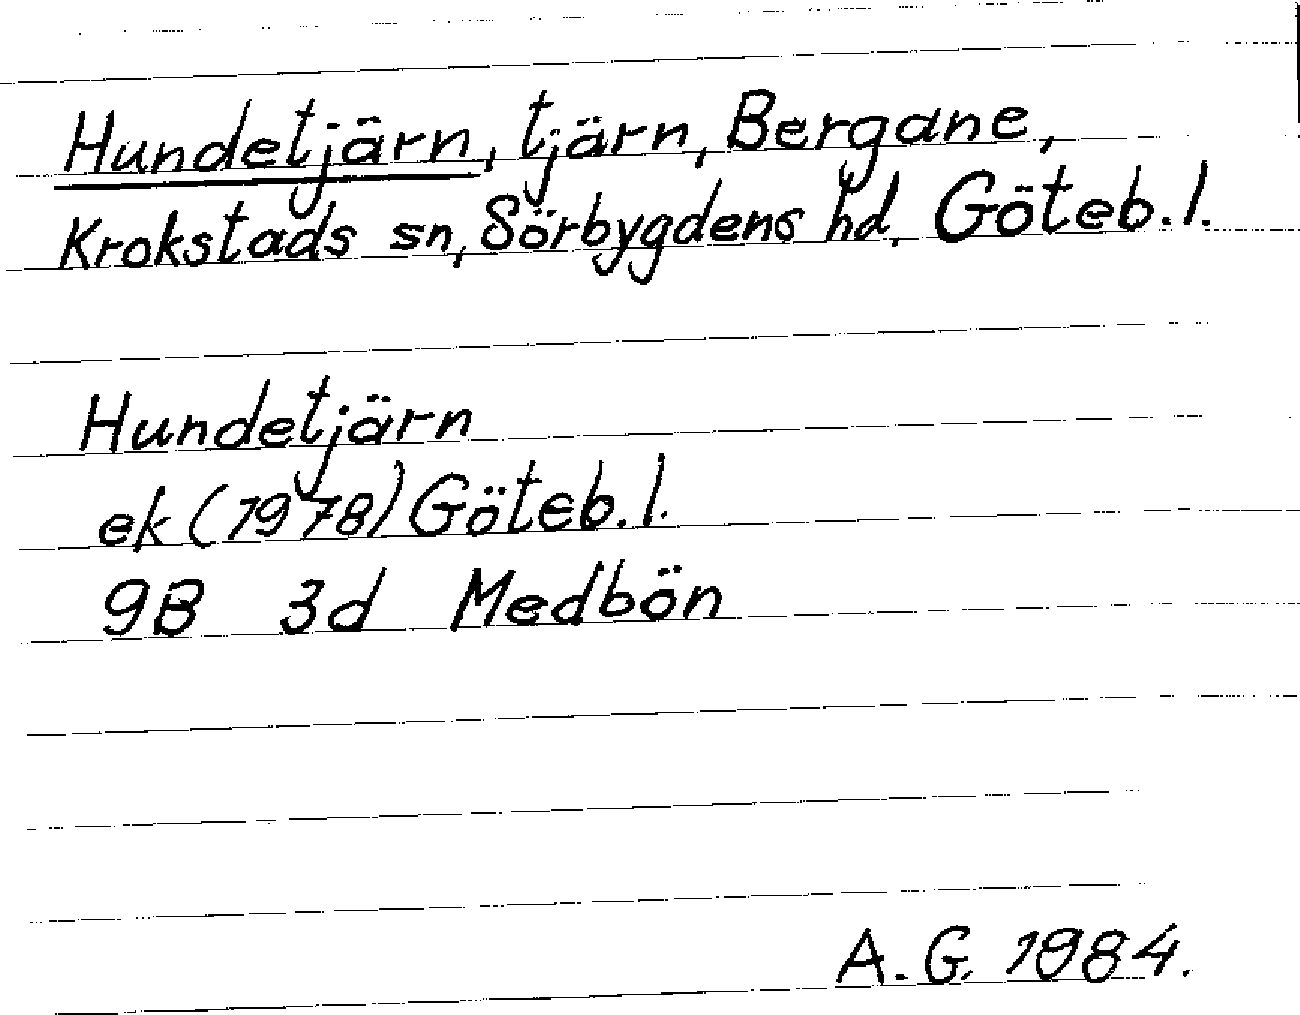 Hundetjärn, tjärn, Bergane,
Krokstads sn, Sörbygdens hd, Göteb. l.
Hundetjärn
ek (1978) Göteb. l.
9B 3d Medbön
A. G. 1984.